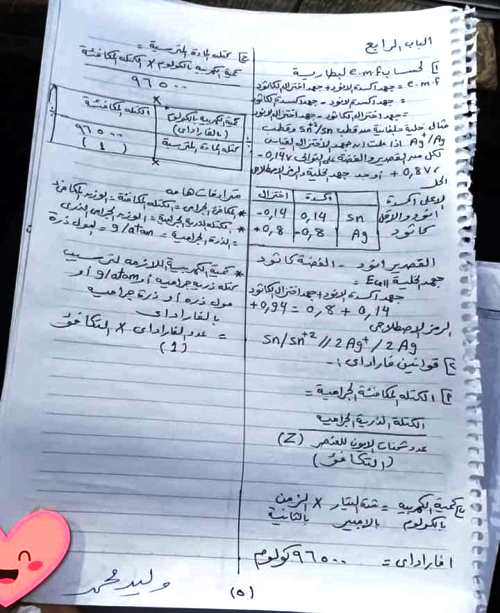 الباب الرابع
١] لحساب e.m.f لبطارية
e.m.f = جهد أكسدة الانود + جهد اختزال الكاثود
= جهد أكسدة الانود - جهد أكسدة الكاثود
= جهد اختزال الكاثود - جهد اختزال الانود
مثال خلية جلفانية من قطب Sn/Sn+2 وقطب
Ag+/Ag اذا علمت ان جهد الاختزال القياسى
لكل من القصدير والفضة على التوالى -0,14v
+0,8v أوجد جهد الخلية والرمز الاصطلاحى
الحل
أكسدة اختزال
Sn 0,14 -0,14
Ag -0,8 +0,8
الاعلى أكسدة
انود والاقل
كاثود
القصدير انود - الفضة كاثود
جهد الخلية Ecell =
جهد أكسدة الانود + جهد اختزال الكاثود
+0,94 = 0,8 + 0,14
الرمز الاصطلاحى
Sn/Sn+2 // 2Ag+/2Ag
٢] قوانين فاراداى :-
أ] الكتلة المكافئة الجرامية =
الكتلة الذرية الجرامية
عدد شحنات الايون للعنصر (Z)
(التكافؤ)
ب] كمية الكهربية = شدة التيار × الزمن
بالكولوم بالامبير بالثانية
١ فاراداى = ٩٦٥٠٠ كولوم
ج] كتلة المادة المترسبة =
كمية الكهربية بالكولوم × الكتلة المكافئة
٩٦٥٠٠
كمية الكهربية بالكولوم الكتلة المكافئة
(بالفاراداى)
كتلة المادة المترسبة ٩٦٥٠٠
(1)
مترادفات هامه
* المكافئ الجرامى = الكتلة المكافئة = الوزن المكافئ
* الكتلة الذرية الجرامية = الوزن الجرامى الذرى
= الذرة الجرامية = g/atom = المول ذرة
* كمية الكهربية اللازمة لترسيب
كتلة ذرية جرامية أو g/atom أو
مول ذرة أو ذرة جرامية
بالفاراداى
= عدد الفاراداى × التكافؤ
(1)
(٥)
وليد محمد